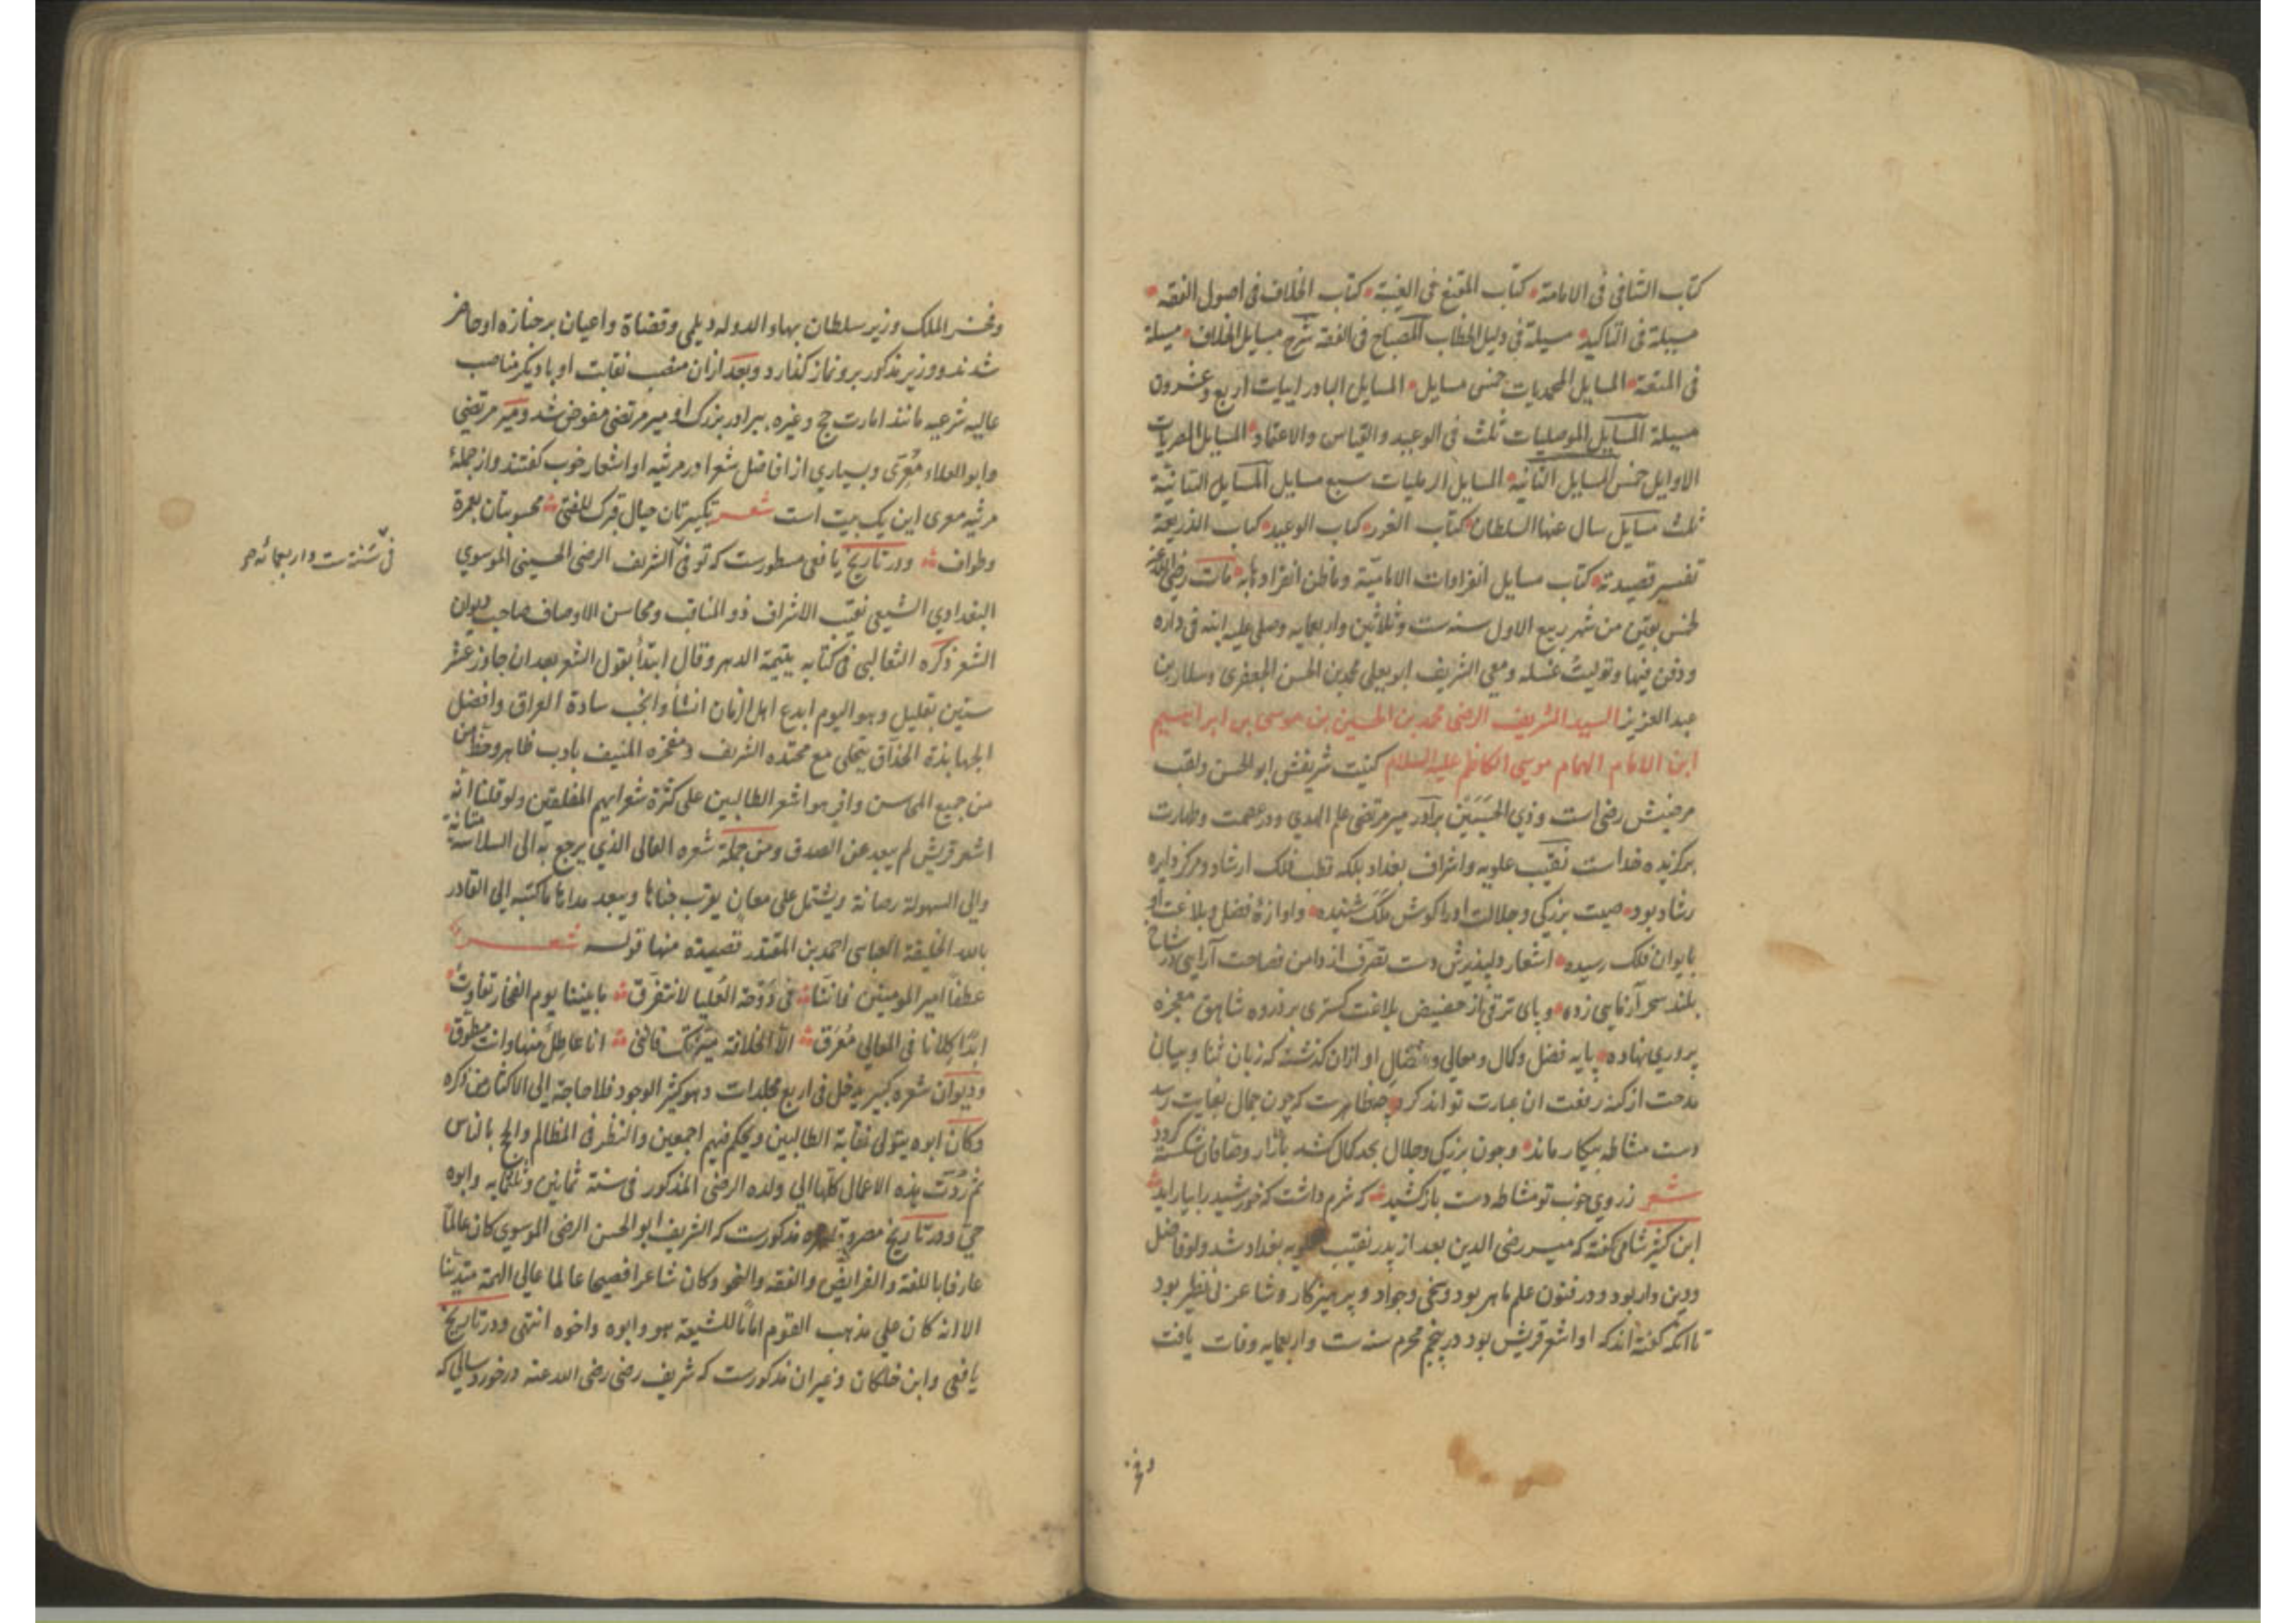 کتاب الشافی فی الامامة کتاب المقنع فی الغیبة کتاب الخلاف فی اصول الفقه
مسیلة فی التاکید مسیلة فی دلیل الخطاب المصباح فی الفقه شرح مسایل الخلاف مسیلة
فی المتعة المسایل المحمدیات خمس مسایل المسایل البادرایات اربع وعشرون
مسیلة المسایل الموصلیات ثلث فی الوعید والقیاس والاعتماد المسایل المصریات
الاوایل خمس المسایل الثانیه المسایل الرملیات سبع مسایل المسایل الثانیة
ثلث مسایل سال عنها السلطان کتاب الغرر کتاب الوعید کتاب الذریعة
تفسیر قصیدته کتاب مسایل انفرادات الامامیّة وماظن انفرادها به مات رضی الله عنه
لخمس بقین من شهر ربیع الاول سنه ست وثلاثین واربعمایه وصلی علیه ابنه فی داره
ودفن فیها وتولیت غسله ومعی الشریف ابو یعلی محمد بن الحسن الجعفری وسلار بن
عبد العزیز السید الشریف الرضی محمد بن الحسین بن موسی بن ابراهیم
ابن الامام الهمام موسی الکاظم علیه السلام کنیت شریفش ابو الحسن ولقب
مرضیش رضی است وذی الحسبین برادر میر مرتضی علم الهدی ودر عصمت وطهارت
برکزیده خداست نقیب علویه واشراف بغداد بلکه قطب فلک ارشاد ومرکز دایره
رشاد بود صیت بزرکی وجلالت او را کوش ملک شنیده واوازۀ فضل وبلاغت او
بایوان فلک رسیده اشعار دلپذیرش دست تصرف از دامن فصاحت آرایی در شاخ
بلند سحر آزمایی زده وپای ترقی از حضیض بلاغت کستری بر ذروه شاهق معجزه
پروری نهاده پایه فضل وکمال ومعالی وافضال او ازان کذشته که زبان ثنا وبیان
مدحت از کنه رفعت ان عبارت تواند کرد چه ظاهرست که چون جمال بغایت رسد
دست مشاطه بیکار ماند وچون بزرکی وجلال بحد کمال کشد بازار وصافان شکسته کردد
شعر ز روی خوب تو مشاطه دست باز کشید که شرم داشت که خورشید را بیاراید
ابن کثیر شامی کفته که میر رضی الدین بعد از پدر نقیب علویه بغداد شد واو فاضل
ودین دار بود ودر فنون علم ماهر بود وسخی وجواد وپرهیزکار وشاعر بی نظیر بود
تا آنکه کفته اند که او اشعر قریش بود در پنجم محرم سنه ست واربعمایه وفات یافت
وفخر
وفخر الملک وزیر سلطان بهاء الدوله دیلمی وقضاة واعیان بر جنازه او حاضر
شدند ووزیر مذکور برو نماز کذارد وبعد ازان منصب نقابت او با دیکر مناصب
عالیه شرعیه مانند امارت حج وغیره ببرادر بزرک او میر مرتضی مفوض شد ومیر مرتضی
وابو العلاء معری وبسیاری از افاضل شعرا در مرثیه او اشعار خوب کفتند واز جملۀ
مرثیه معری این یک بیت است شعر تکبیرتان حیال قبرک للفتی محسوبتان بعمرة
وطواف ودر تاریخ یافعی مسطورست که توفی الشریف الرضی الحسینی الموسوی
فی سنة ست واربعمائه
البغدادی الشیعی نقیب الاشراف ذو المناقب ومحاسن الاوصاف صاحب دیوان
الشعر ذکره الثعالبی فی کتابه یتیمة الدهر وقال ابتدأ بقول الشعر بعد ان جاوز عشر
سنین بقلیل وهو الیوم ابدع اهل الزمان انشأ وانجب سادة العراق وافضل
الجهابذة الحذاق یتحلی مع محتده الشریف ومفخره المنیف بادب ظاهر وحظ
من جمیع المحاسن وافر هو اشعر الطالبین علی کثرة شعرایهم المفلقین ولو قلنا انه
اشعر قریش لم یبعد عن الصدق ومن جملة شعره العالی الذی یرجع به الی السلاسة متانة
والی السهولة رصانة ویشتمل علی معان یقرب جناها ویبعد مداها ما کتبه الی القادر
بالله الخلیفة العباسی احمد بن المقتدر قصیده منها قوله شعر
عطفاً امیر المومنین فاننا فی دوحة العلیا لا نتفرق ما بیننا یوم الفخار تفاوت
ابداً کلانا فی المعالی معرق الا الخلافة میزتک فاننی انا عاطل منها وانت مطوق
ودیوان شعره کبیر یدخل فی اربع مجلدات وهو کثیر الوجود فلا حاجة الی الاکثار من ذکره
وکان ابوه یتولی نقابة الطالبین ویحکم فیهم اجمعین والنظر فی المظالم والحج بالناس
ثم ردت هذه الاعمال کلها الی ولده الرضی المذکور فی سنة ثمانین وثلثمایه وابوه
حی ودر تاریخ مصر وقاهره مذکورست که الشریف ابو الحسن الرضی الموسوی کان عالماً
عارفا باللغة والفرایض والفقه والنحو وکان شاعرا فصیحا عالما عالی الهمة متدینا
الا انه کان علی مذهب القوم اماماً للشیعة هو وابوه واخوه انتهی ودر تاریخ
یافعی وابن خلکان وغیر ان مذکورست که شریف رضی رضی الله عنه در خورد سالی که